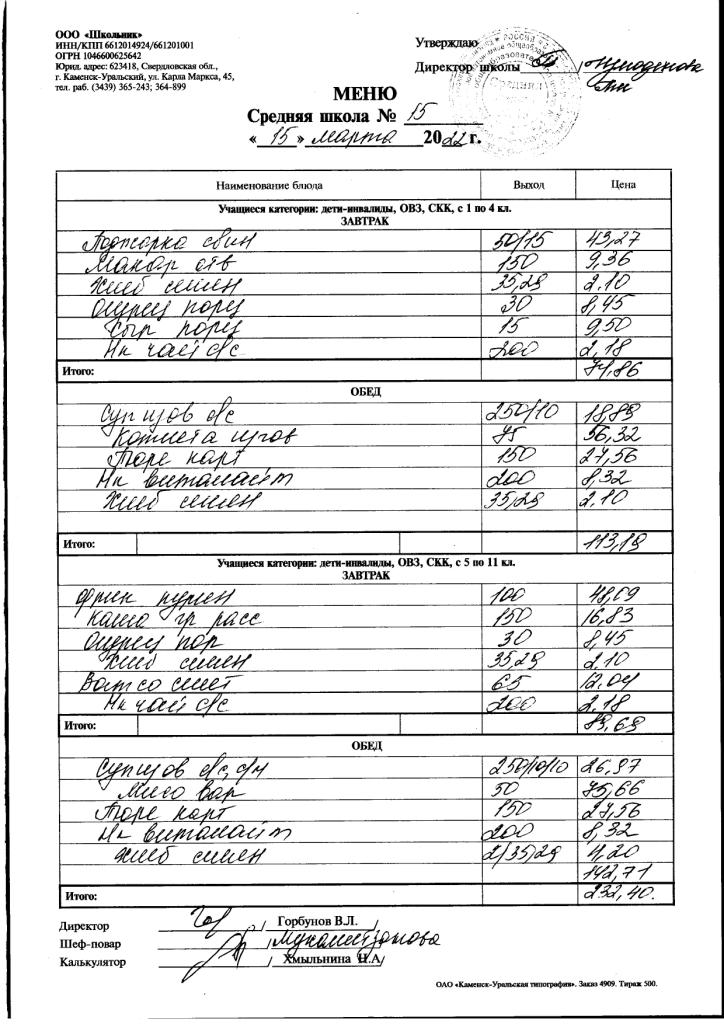 ООО «Школьник»
ИНН/КПП 6612014924/661201001
ОГРН 1046600625642
Юрид. адрес: 623418, Свердловская обл.,
г. Каменск-Уральский, ул. Карла Маркса, 45,
тел. раб. (3439) 365-243; 364-899
Утверждаю
Директор школы /
МЕНЮ
Средняя школа № 15
« 15 » марта 2022 г.
Наименование блюда Выход Цена
Учащиеся категории: дети-инвалиды, ОВЗ, СКК, с 1 по 4 кл.
ЗАВТРАК
Поджарка свин 50/15 43,27
Макар отв 150 9,36
Хлеб 35,28 2.10
Огурец порц 30 8,45
Сыр порц 15 9,50
Нк чай с/с 200 2,18
Итого: 74,86
ОБЕД
Суп 250/10 18,89
Котлета 75 56,32
Пюре карт 150 27,56
Нк виталайт 200 8,32
Хлеб 35,28 2.10
Итого: 113,19
Учащиеся категории: дети-инвалиды, ОВЗ, СКК, с 5 по 11 кл.
ЗАВТРАК
100 48,09
Каша гр расс 150 16,83
Огурец пор 30 8,45
Хлеб 35,28 2.10
65 12.04
Нк чай с/с 200 2.18
Итого: 89,69
ОБЕД
Суп 250/10/10 26,97
Мясо вар 50 75,66
Пюре карт 150 27,56
Нк виталайт 200 8,32
Хлеб 2/35,28 4,20
142,71
Итого: 232,40.
Директор / Горбунов В.Л. /
Шеф-повар /
Калькулятор / Хмыльнина Н.А/
ОАО «Каменск-Уральская типография». Заказ 4909. Тираж 500.